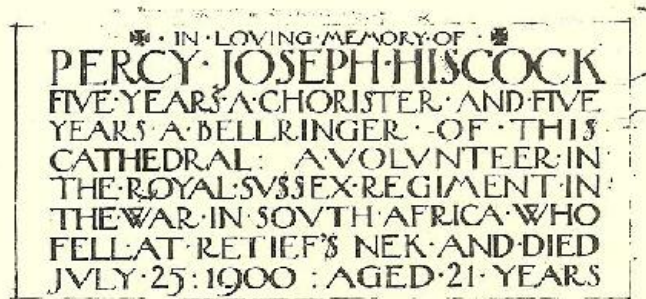 ✠ · IN · LOVING · MEMORY · OF · ✠
PERCY · JOSEPH · HISCOCK
FIVE · YEARS · A · CHORISTER · AND · FIVE
YEARS · A · BELLRINGER · OF · THIS
CATHEDRAL : A VOLVNTEER · IN
THE · ROYAL · SVSSEX · REGIMENT · IN
THE WAR · IN · SOVTH · AFRICA · WHO
FELL · AT · RETIEF'S NEK · AND · DIED
JVLY · 25 : 1900 : AGED · 21 · YEARS